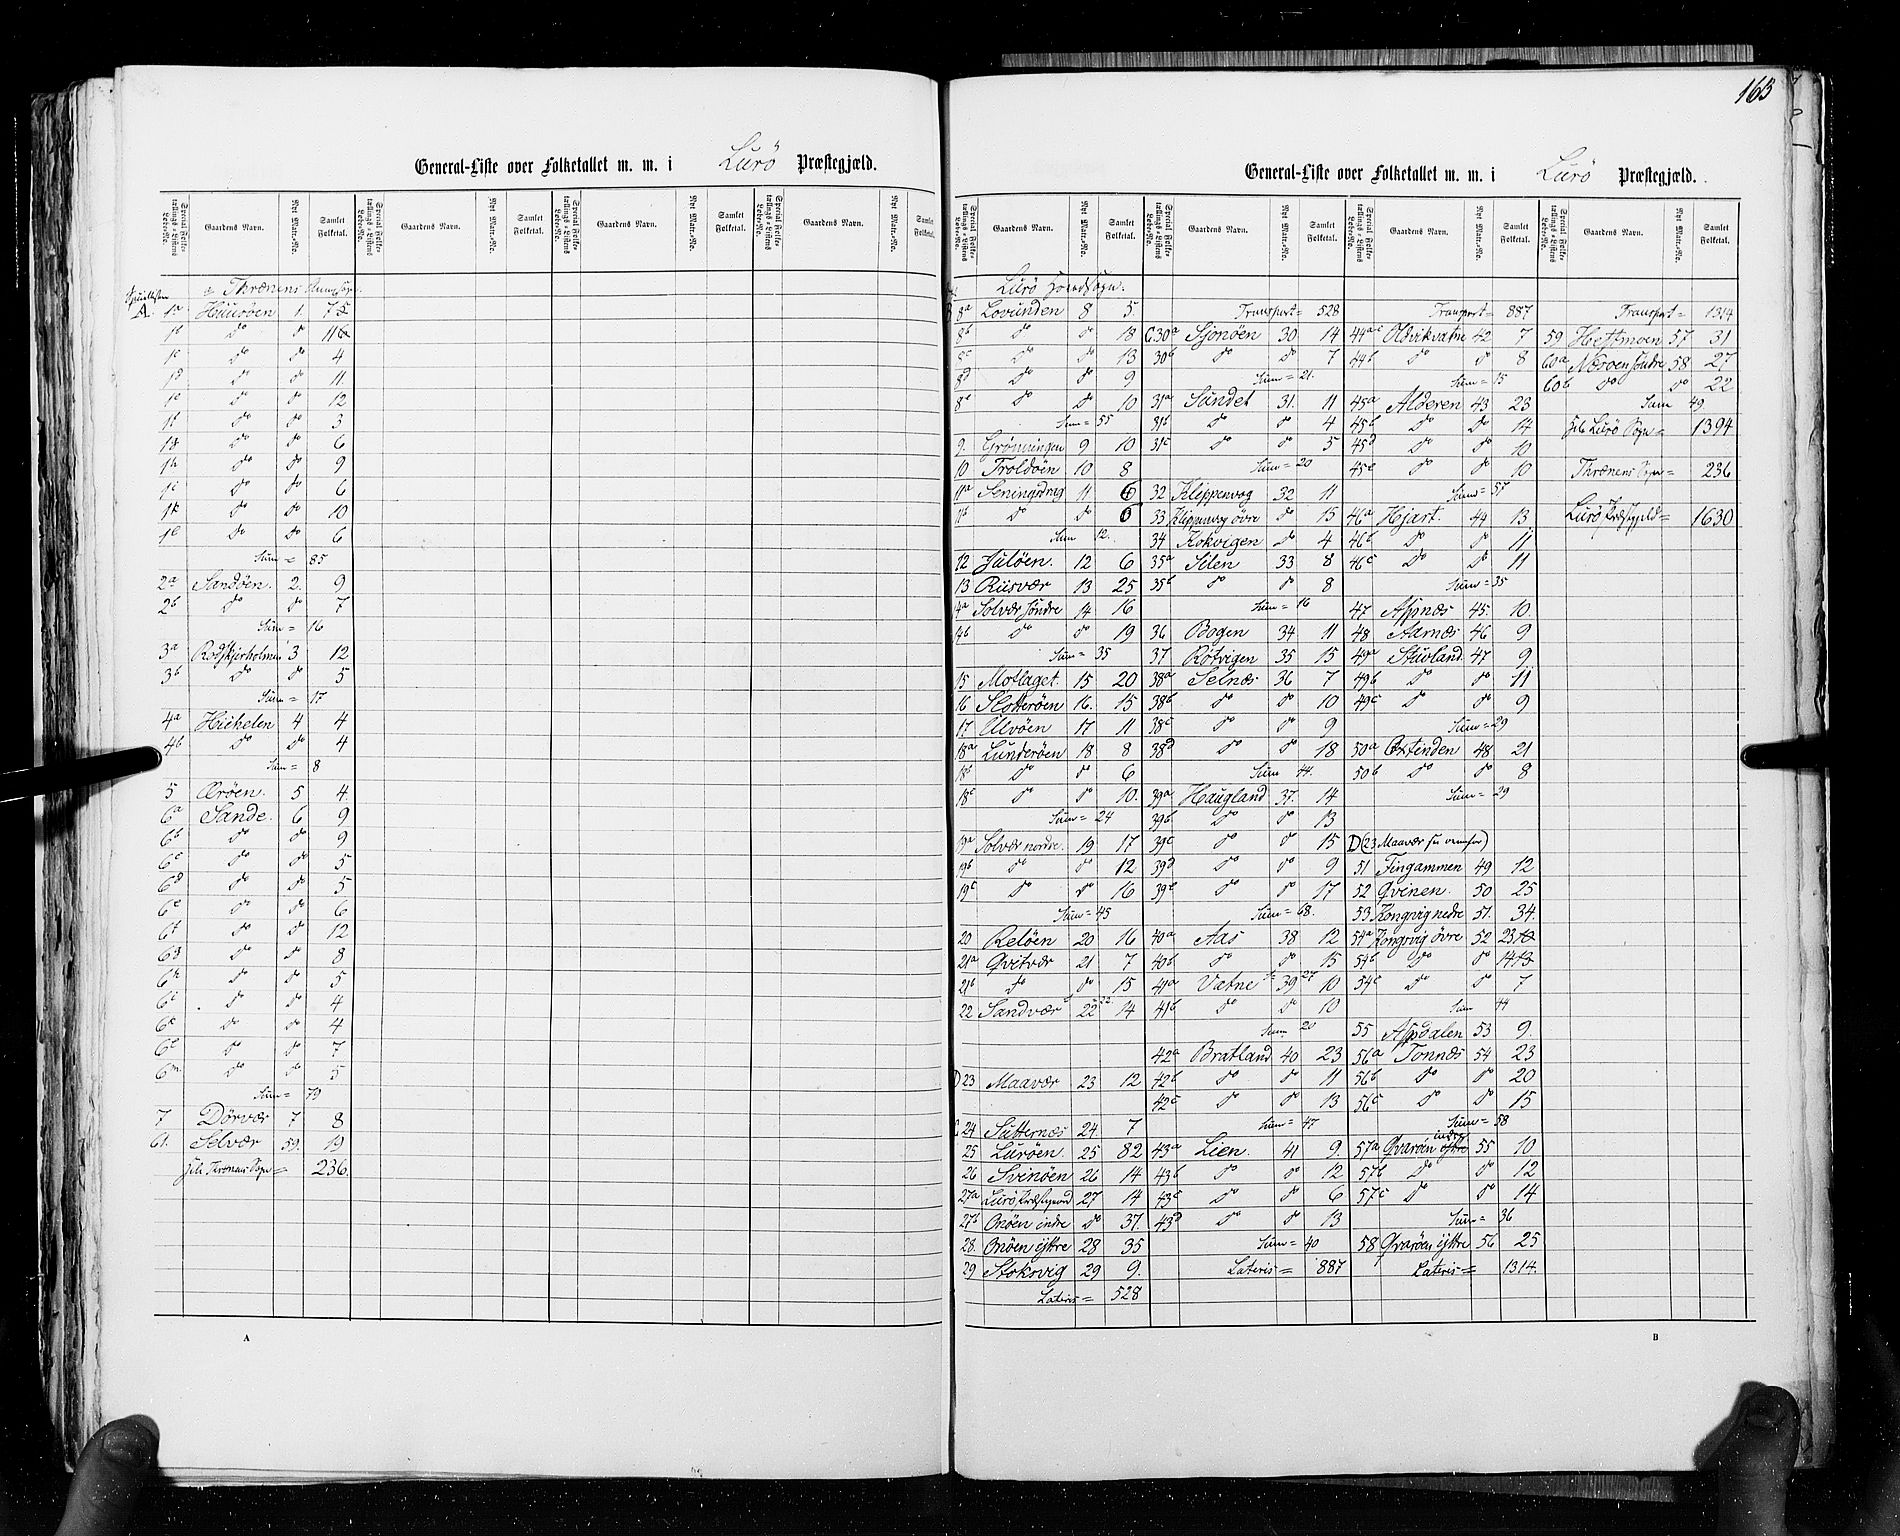 163
General-Liste over Folketallet m. m. i Lurö Præstegjæld.
Special Folketællings-Listens Løbe-No. Gaardens Navn. Nyt Matr.-No. Samlet Folketal.
Thrænens Sogn
A. 1a Huusöen 1. 75
1b do do 11
1c do do 4
1d do do 11
1e do do 12
1f do do 3
1g do do 6
1h do do 9
1i do do 6
1k do do 10
1l do do 6
Sum = 85
2a Sandöen. 2. 9
2b do do 7
Sum = 16
3a Rodskjerholmen 3 12
3b do do 5
Sum = 17
4a Hikelen 4 4
4b do do 4
Sum = 8
5 Œröen. 5 4.
6a Sande. 6 9
6b do do 9
6c do do 5
6d do do 5
6e do do 6
6f do do 12
6g do do 8
6h do do 5
6i do do 4
6k do do 4
6l do do 7
6m do do 5
Sum = 79
7 Dörvær 7 8
61. Selvær 59. 19
Sogn = 236.
A
General-Liste over Folketallet m. m. i Lurö Præstegjæld.
Special Folketællings-Listens Løbe-No. Gaardens Navn. Nyt Matr.-No. Samlet Folketal.
Lurö Hovedsogn.
8a Lovunden 8 5.
8b do do 18
8c do do 13
8d do do 9
8e do do 10
Sum = 55
9. Grönningen 9 10
10 Troldöen 10 8
11a Seningsdrag 11 6
11b do do 6
Sum 12.
12 Juleöen. 12 6
13 Riisvær 13 25
14a Solvær söndre 14 16
14b do do 19
Sum = 35
15 Motlaget 15 20
16 Slotteröen 16. 15
17 Ulvöen 17 11
18a Lunderöen 18 8
18b do do 6
18c do do 10.
Sum = 24
19a Solvær nordre. 19 17
19b do do 12
19c do do 16
Sum = 45
20 Relöen 20 16
21a Qvitvær 21 7
21b do do 15
22 Sandvær 22 14
23 Maavær 23 12
24 Sutternæs 24. 7
25 Luröen. 25 82
26 Svinöen 26 14
27a Lurö Præstegaard 27 14
27b Onöen indre do 37.
28. Onöen ijttre 28 35
29 Stoksvig 29 9.
Lateris = 528
Transport = 528
C. 30a Sjonöen 30 14
30b do do 7
Sum = 21.
31a Sundet 31 11
31b do do 4
31c do do 5
Sum = 20
32 Klippenvog 32 11
33 Klippenvog övre do 15
34 Kokvigen do 4
35a Silen 33 8
35b do do 8
Sum = 16
36 Bogen 34 11
37 Rötvigen 35 15
38a Selnæs 36 7
38b do do 10
38c do do 9
38d do do 18
Sum 44.
39a Haugland 37. 14
39b do do 13
39c do do 15
39d do do 9
39e do do 17
Sum = 68.
40a Aas 38 12
40b do do 15
41a Vatne 39 10
41b do do 10
Sum 20
42a Bratland 40 23
42b do do 11
42c do do 13
Sum = 47
43a Lien. 41 9.
43b do do 12
43c do do 6
43d do do 13
Sum = 40
Lateris = 887
Transport = 887
Oldvikvatne 42 7
44b do do 8
Sum = 15
45a Alderen 43 23
45b do do 14
45d do do 10
45e do do 10
Sum = 57
46a Hjart. 44 13
46b do do 11
46c do do 11
Sum = 35
47 Aspnæs 45. 10
48 Aarnæs 46 9
49a Stuvland 47 9
49b do do 11
49c do do 9
Sum = 29
50a Oxtinden 48 21
50b do do 8
Sum = 29
D (23 Maavær
51 Tingammen 49 12
52 Qvinen. 50 25
53 Kongsvig nedre 51. 34.
54a Kongsvig övre 52 23
54b do do 14
54c do do 7
Sum 44
55 Aspdalen 53 9.
56a Tonnæs 54 23
56b do do 20
56c do do 15
Sum = 58
57a Qvaröen indre 55 10
57b do do 12
57c do do 14
Sum = 36
58 Qvaröen ijttre 56 25
Lateris = 1314.
Transport = 1314
59 Hestmoen 57 31
60a Næsöen söndre 58 27
60b do do 22
Sum 49
Lurö Sogn = 1394
Thrænens Sogn = 236
Lurö Præstegjeld = 1630
B